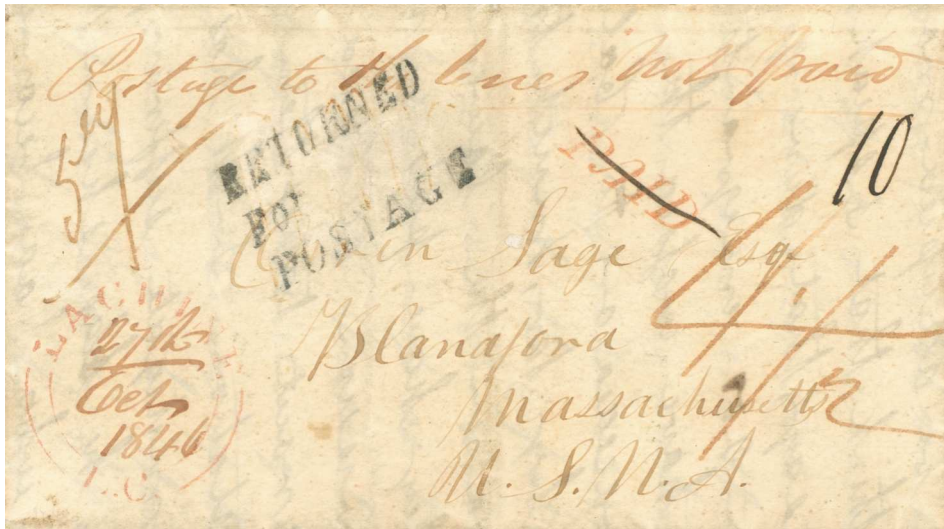 Postage to the lines not paid
RETURNED
FOR
POSTAGE
PAID
10
Sage Esqr
Blandford
Massachusetts
U. S. N. A.
LACHINE
27th
Oct
1846
L.C.